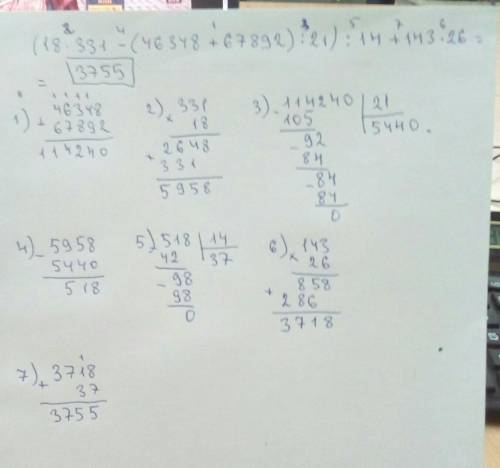 2 4 1 3 5 7 6
(18·331-(46348+67892):21):14+143·26=
= 3755
1) + 46348
67892
114240
2) × 331
18
+ 2648
331
5958
3) - 114240 | 21
105 | 5440.
- 92
84
- 84
84
0
4) - 5958
5440
518
5) - 518 | 14
42 | 37
- 98
98
0
6) × 143
26
+ 858
286
3718
7) + 3718
37
3755